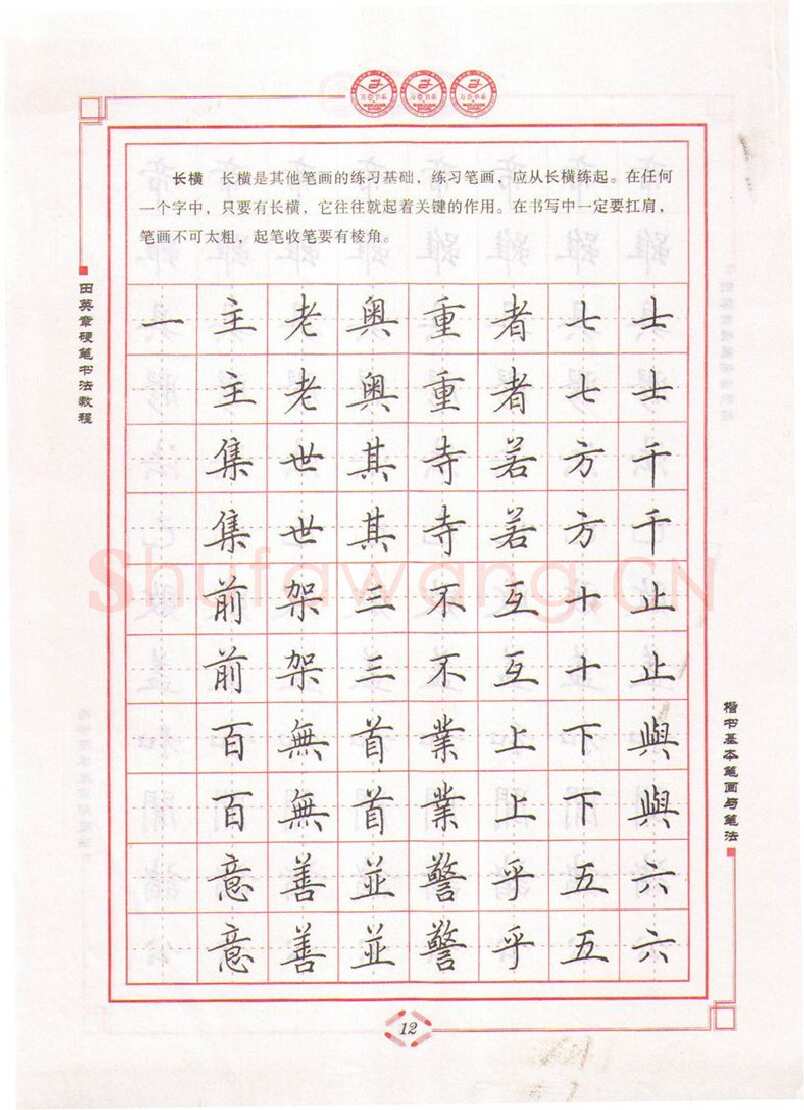 长横 长横是其他笔画的练习基础，练习笔画，应从长横练起。在任何
一个字中，只要有长横，它往往就起着关键的作用。在书写中一定要扛肩，
笔画不可太粗，起笔收笔要有棱角。
田英章硬笔书法教程
一主老奥重者七士
主老奥重者七士
集世其寺若方干
集世其寺若方干
前架三不互十止
前架三不互十止
百無首業上下與
百無首業上下與
意善並警乎五六
意善並警乎五六
Shufawang.CN
楷书基本笔画与笔法
12